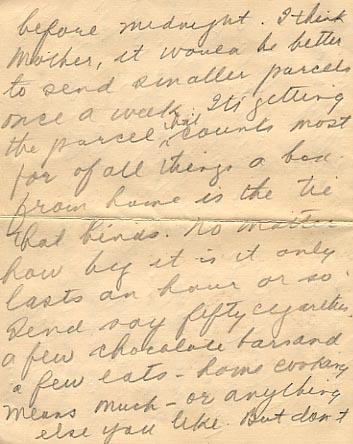 before midnight. I think
Mother, it would be better
to send smaller parcels
once a week. Its getting
the parcel that counts most
for of all things a box
from home is the tie
that binds. No matter
how big it is it only
lasts an hour or so
Send say fifty cigarettes,
a few chocolate bars and
a few eats - home cooking
means much - or anything
else you like. But don't